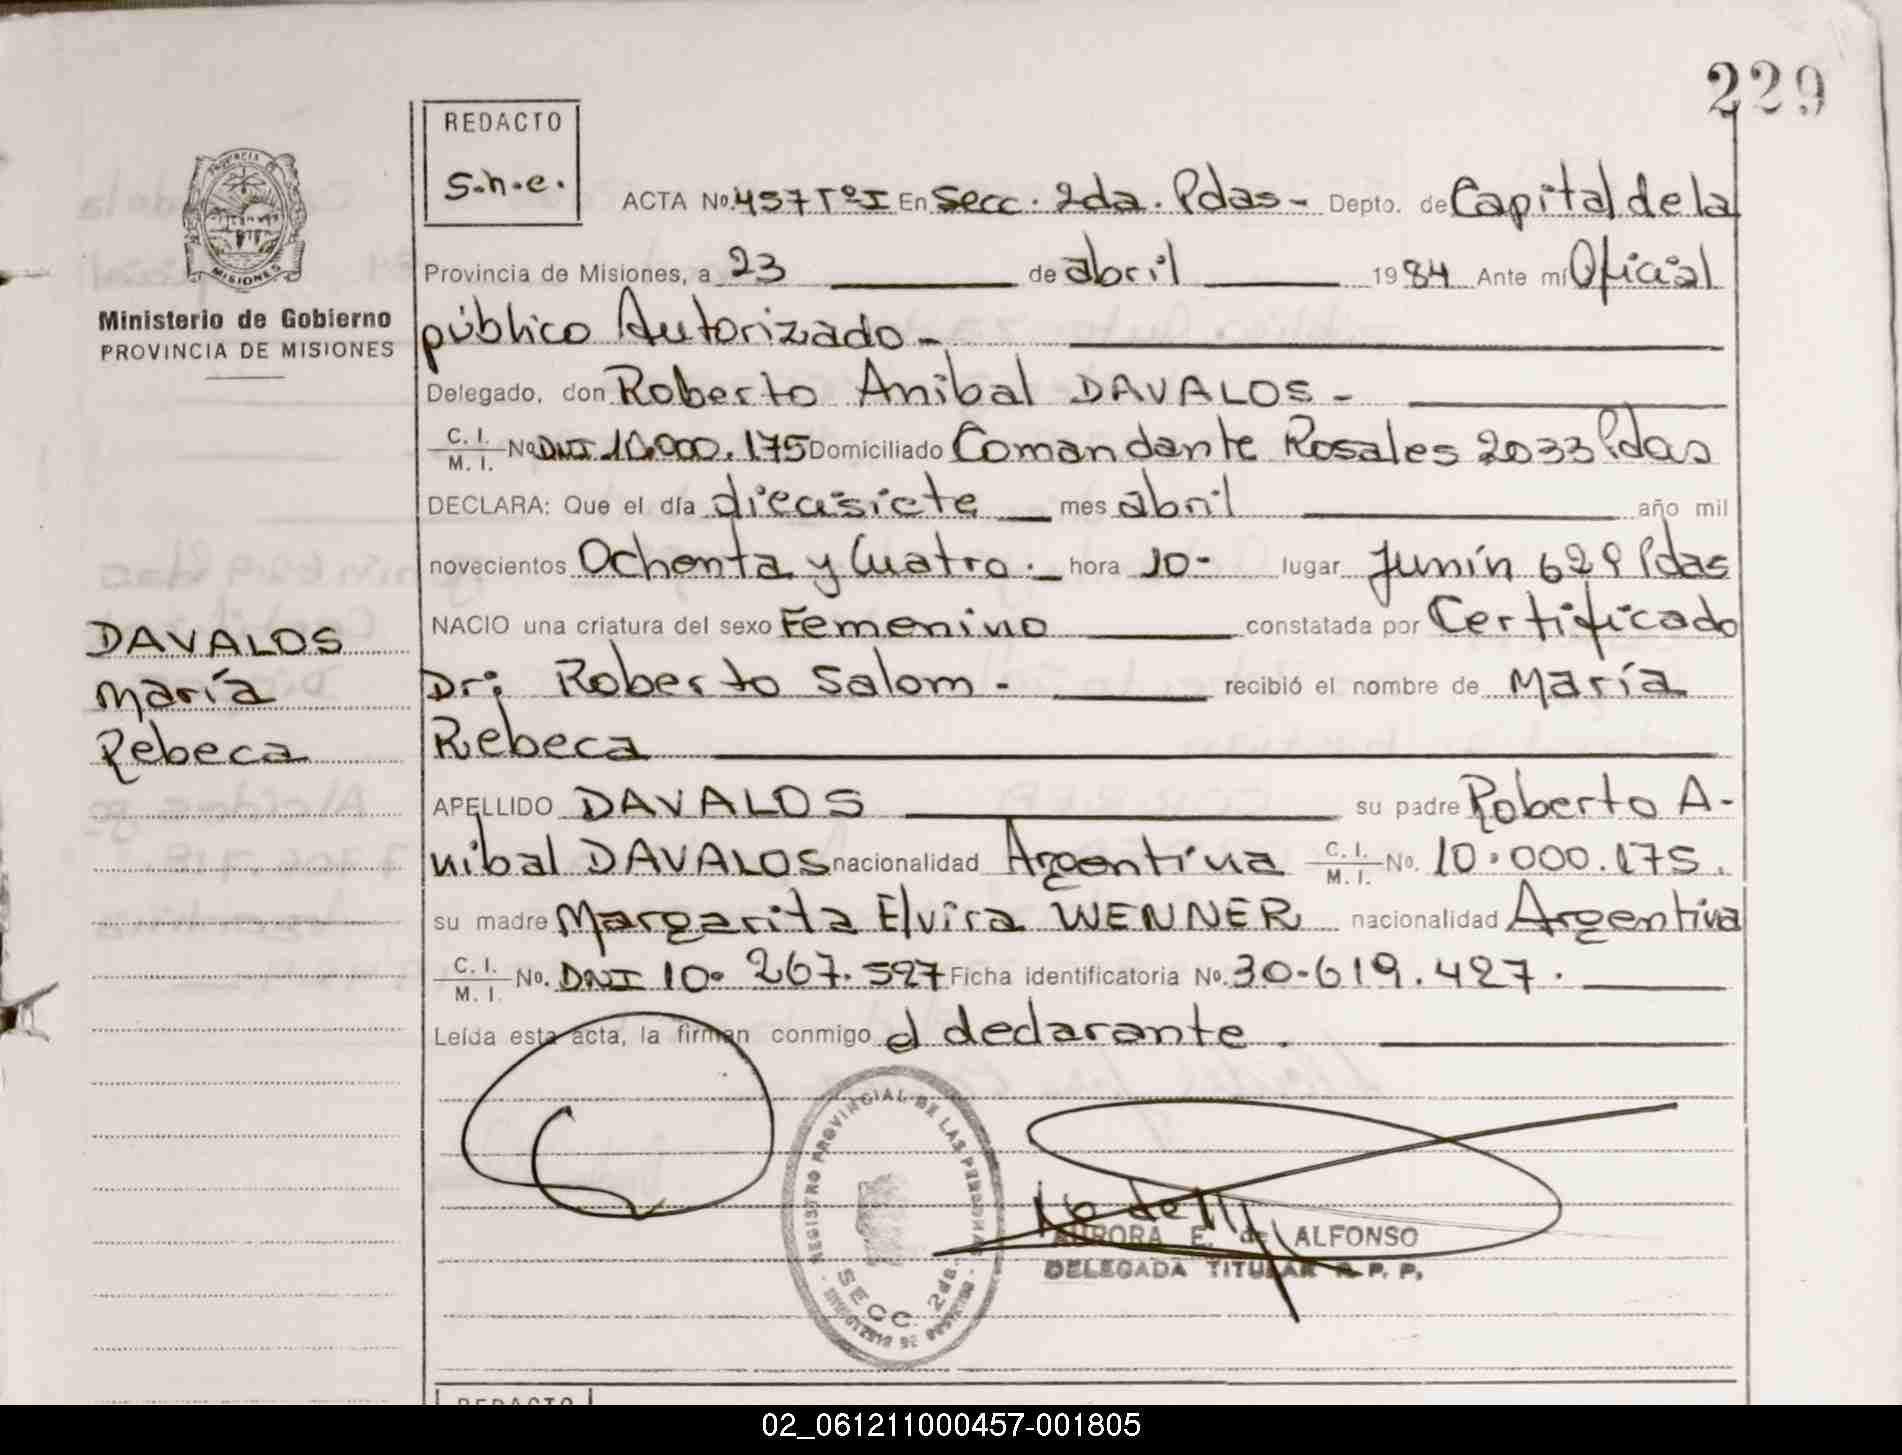 229
REDACTO
S.h.e.
PROVINCIA DE
MISIONES
Ministerio de Gobierno
PROVINCIA DE MISIONES
ACTA No. 457 TºI En Secc. 2da. Pdas - Depto. de Capital de la
Provincia de Misiones, a 23 de abril 1984 Ante mí Oficial
público Autorizado -
Delegado, don Roberto Anibal DAVALOS -
C. I. M. I. No DNI 10.000.175 Domiciliado Comandante Rosales 2033 Pdas
DECLARA: Que el día diecisiete mes abril año mil
novecientos Ochenta y Cuatro.- hora 10- lugar Junín 629 Pdas
NACIO una criatura del sexo Femenino constatada por Certificado
Dr: Roberto Salom - recibió el nombre de María
Rebeca
DAVALOS
María
Rebeca
APELLIDO DAVALOS su padre Roberto A-
nibal DAVALOS nacionalidad Argentina C. I. M. I. No. 10.000.175.
su madre Margarita Elvira WENNER nacionalidad Argentina
C. I. M. I. No. DNI 10.267.527 Ficha identificatoria No. 30-619.427.
Leída esta acta, la firman conmigo el declarante.
REGISTRO PROVINCIAL DE LAS PERSONAS
SECC. 2da.
AURORA E. de ALFONSO
DELEGADA TITULAR R. P. P.
REDACTO
02_061211000457-001805